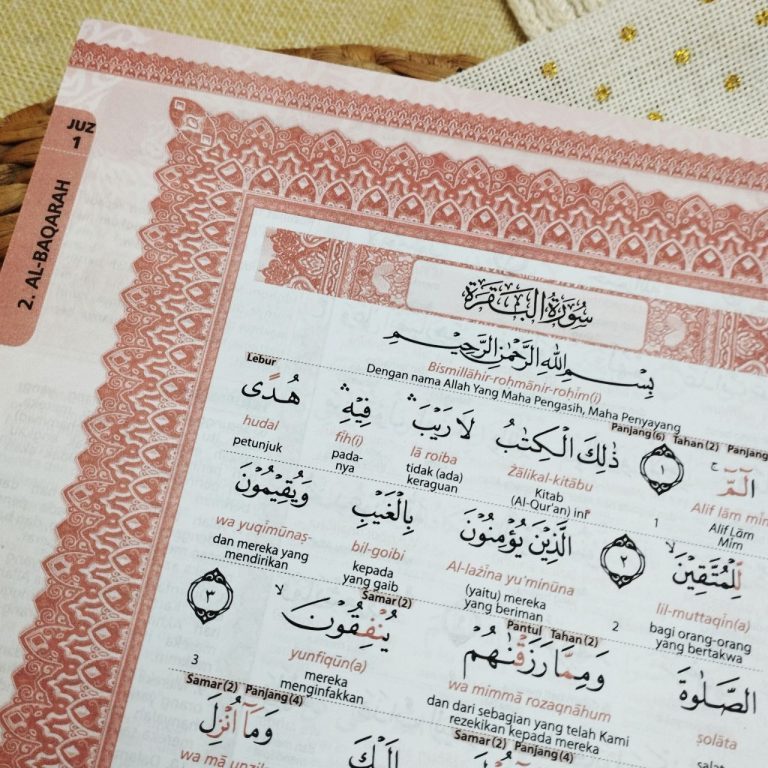 JUZ
1
2. AL-BAQARAH
سُوْرَةُ الْبَقَرَةِ
بِسْمِ اللّٰهِ الرَّحْمٰنِ الرَّحِيْمِ
Bismillāhir-roḥmānir-roḥīm(i)
Dengan nama Allah Yang Maha Pengasih, Maha Penyayang
Lebur Panjang(6) Tahan(2) Panjang
الۤمّۤ ۚ ١ ذٰلِكَ الْكِتٰبُ لَا رَيْبَ ۛ فِيْهِ ۛ هُدًى
hudal fīh(i) lā roiba Żālikal-kitābu Alif lām mīm
petunjuk pada-nya tidak (ada) keraguan Kitab (Al-Qur'an) ini 1 Alif Lām Mīm
لِّلْمُتَّقِيْنَ ۙ ٢ الَّذِيْنَ يُؤْمِنُوْنَ بِالْغَيْبِ وَيُقِيْمُوْنَ
wa yuqīmūnaṣ- bil-goibi Al-lażīna yu'minūna lil-muttaqīn(a)
dan mereka yang mendirikan kepada yang gaib (yaitu) mereka yang beriman 2 bagi orang-orang yang bertakwa
Samar(2) Pantul Tahan(2)
الصَّلٰوةَ وَمِمَّا رَزَقْنٰهُمْ يُنْفِقُوْنَ ۙ ٣
yunfiqūn(a) wa mimmā rozaqnāhum ṣolāta
3 mereka menginfakkan dan dari sebagian yang telah Kami rezekikan kepada mereka
Samar(2) Panjang(4) Samar(2) Panjang(4)
وَمَآ اُنْزِلَ
wa mā